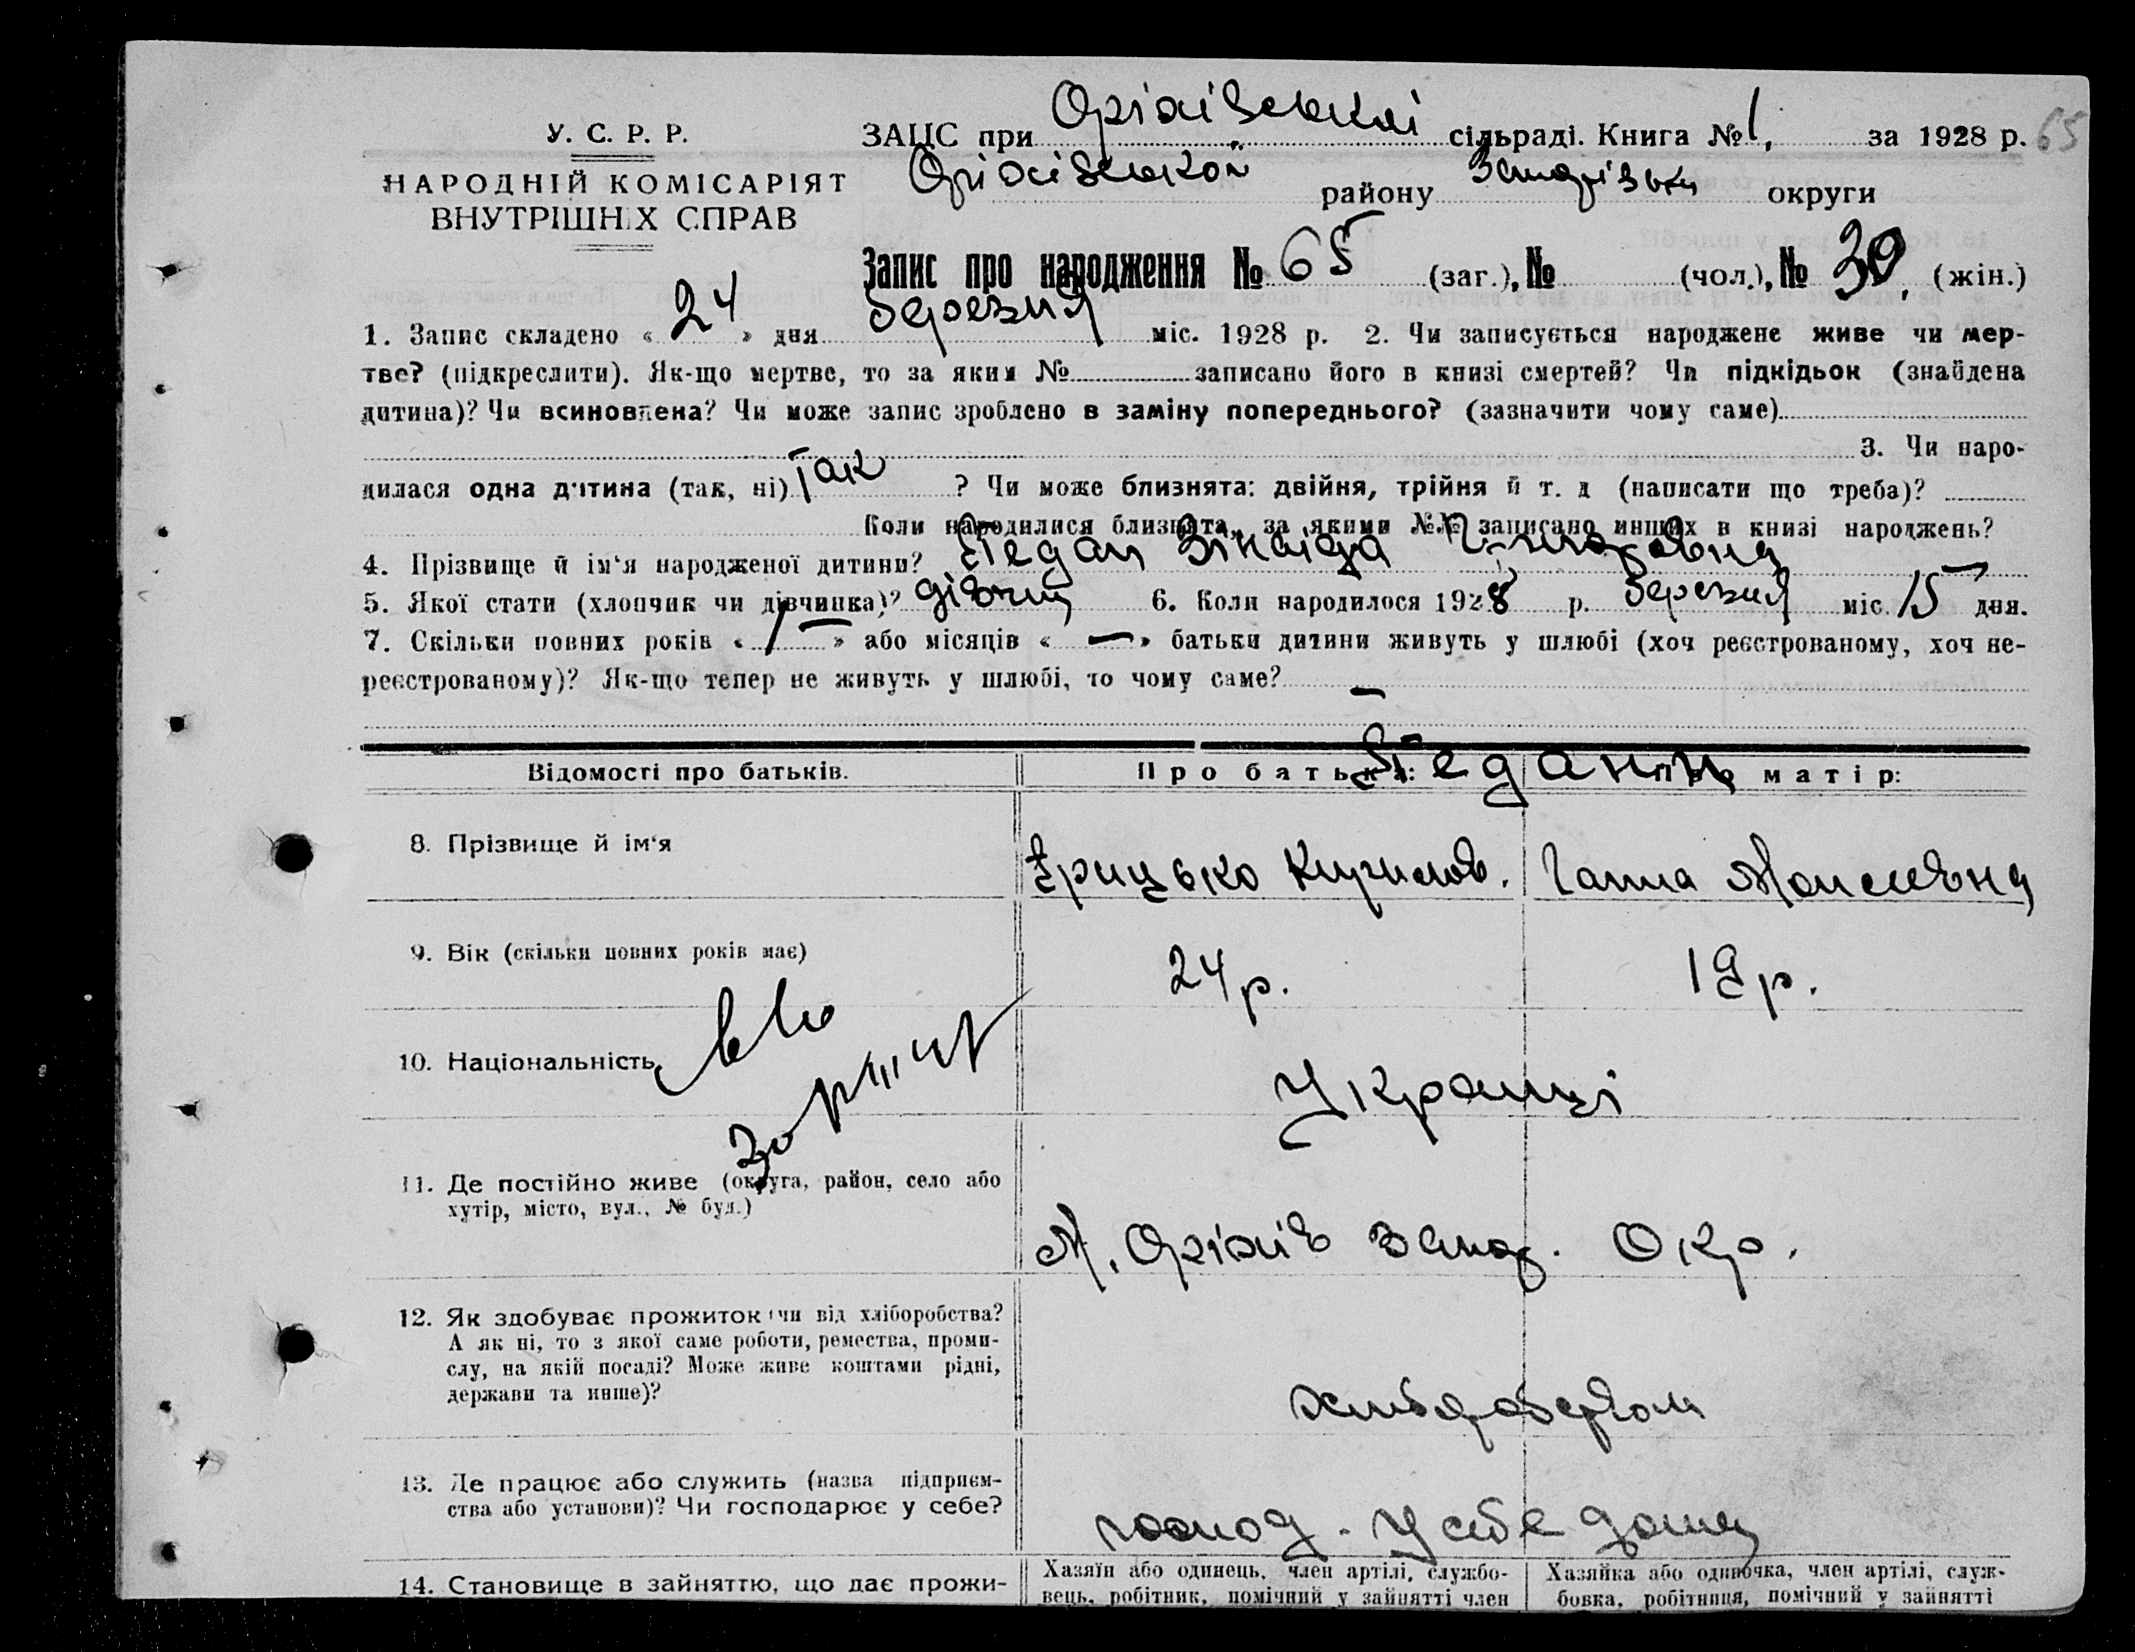 У. С. Р. Р.
НАРОДНІЙ КОМІСАРІЯТ
ВНУТРІШНІХ СПРАВ
ЗАЦС при Оріхівській сільраді. Книга № 1, за 1928 р. 65
Оріхівської району Запоріської округи
Запис про народження № 65 (заг.), № (чол.), № 30, (жін.)
1. Запис складено « 24 » дня березня міс. 1928 р. 2. Чи записується народжене живе чи мер-
тве? (підкреслити). Як-що мертве, то за яким № записано його в книзі смертей? Чи підкідьок (знайдена
дитина)? Чи всиновлена? Чи може запис зроблено в заміну попереднього? (зазначити чому саме)
3. Чи наро-
дилася одна дитина (так, ні) Так ? Чи може близнята: двійня, трійня й т. д (написати що треба)?
Коли народилися близнята, за якими №№ записано инших в книзі народжень?
4. Прізвище й ім'я народженої дитини? Зінаїда
5. Якої стати (хлопчик чи дівчинка)? дівчин 6. Коли народилося 1928 р. березня міс. 15 дня.
7. Скільки повних років « 1 — » або місяців « — » батьки дитини живуть у шлюбі (хоч реєстрованому, хоч не-
реєстрованому)? Як-що тепер не живуть у шлюбі, то чому саме? —
Відомості про батьків. Про батька: Про матір:
8. Прізвище й ім'я Грицько Кирилов. Ганна Мойсеївна
9. Вік (скільки повних років має) 24 р. 19 р.
10. Національність Українці
11. Де постійно живе (округа, район, село або
хутір, місто, вул., № буд.)
М. Оріхів Запор. Окр.
12. Як здобуває прожиток чи від хліборобства?
А як ні, то з якої саме роботи, ремества, проми-
слу, на якій посаді? Може живе коштами рідні,
держави та инше)?
хліборобством
13. Де працює або служить (назва підприєм-
ства або установи)? Чи господарює у себе?
господ. У себе дома
14. Становище в зайняттю, що дає прожи-
Хазяїн або одинець, член артілі, службо-
вець, робітник, помічний у зайнятті член
Хазяйка або одиночка, член артілі, служ-
бовка, робітниця, помічний у зайнятті